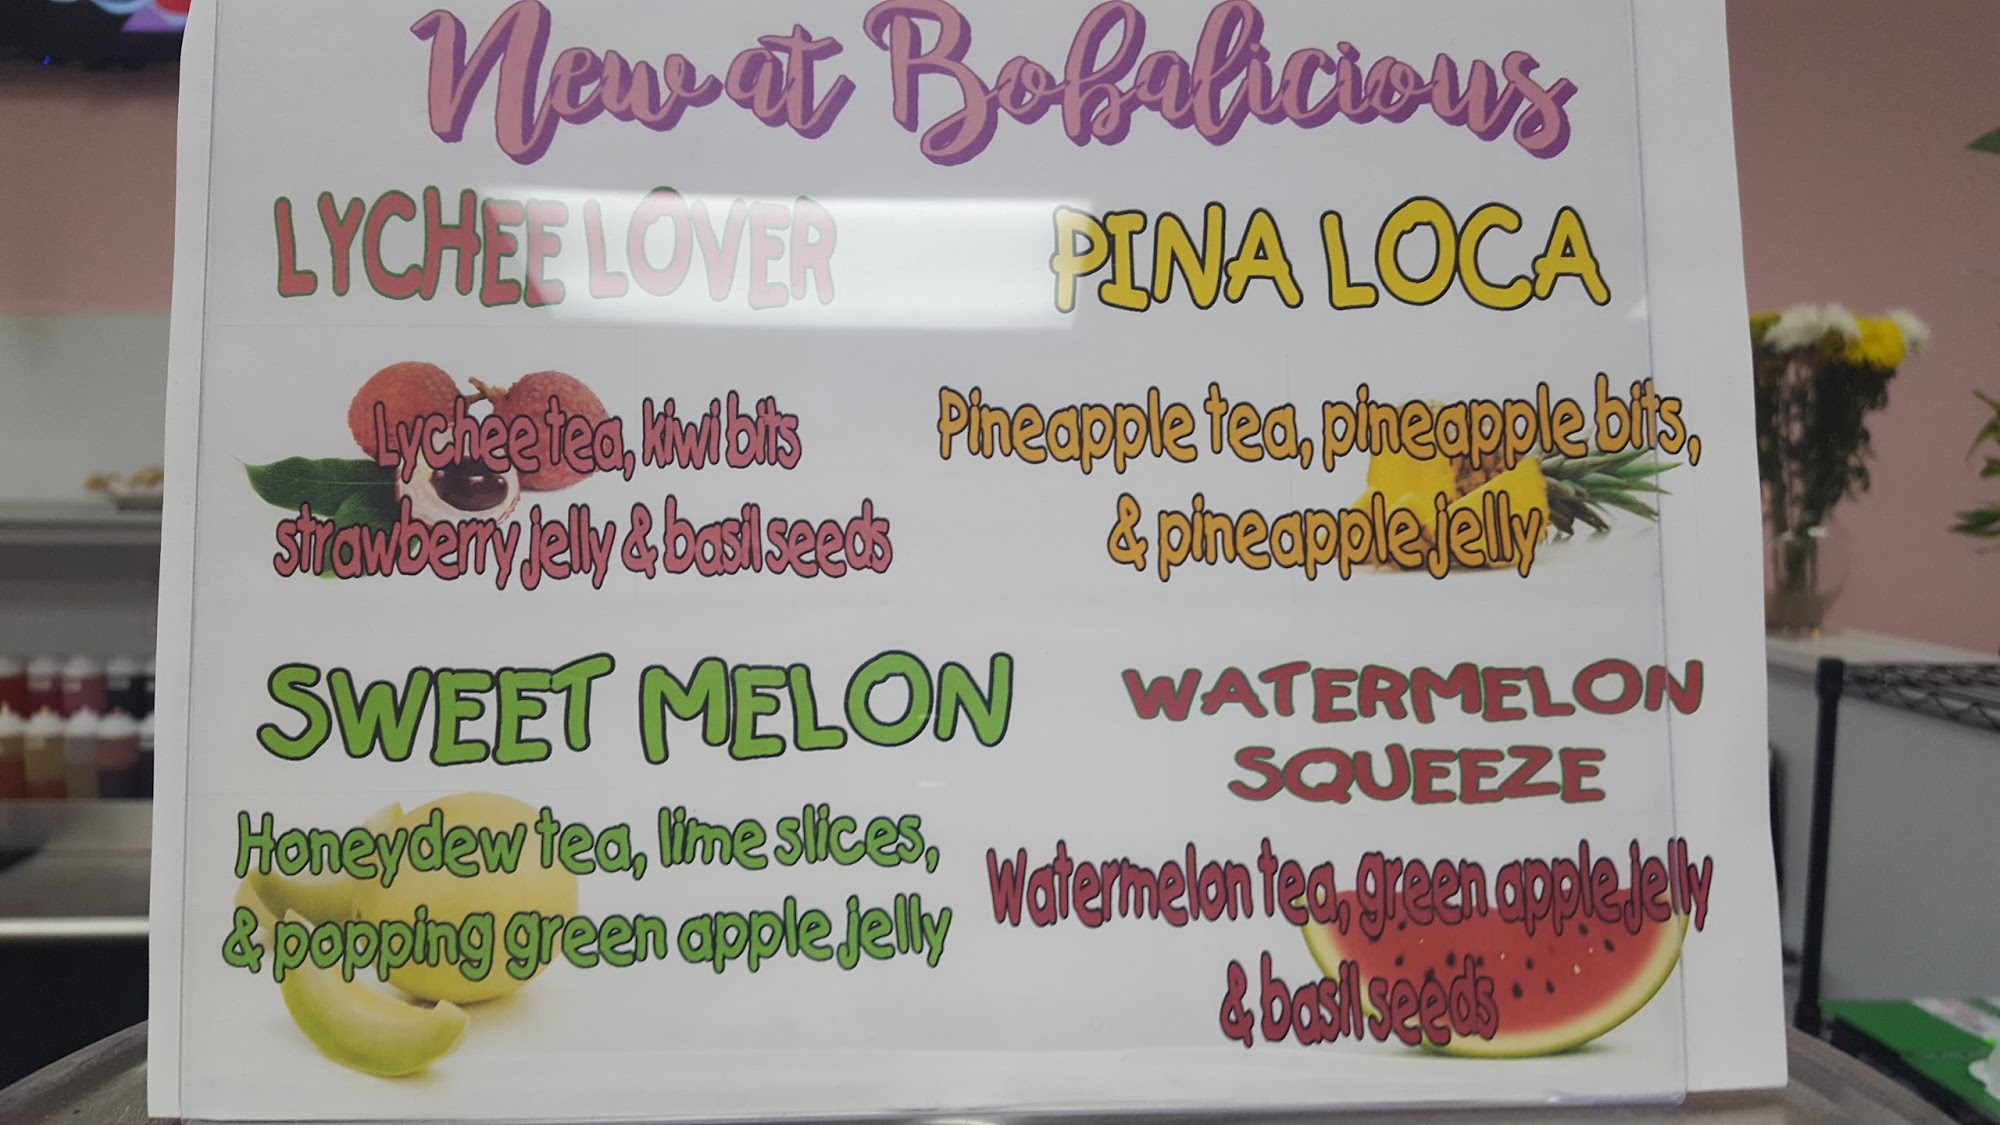 New at Bobalicious
LYCHEE LOVER
Lychee tea, kiwi bits
strawberry jelly & basil seeds
PINA LOCA
Pineapple tea, pineapple bits,
& pineapple jelly
SWEET MELON
Honeydew tea, lime slices,
& popping green apple jelly
WATERMELON
SQUEEZE
Watermelon tea, green apple jelly
& basil seeds